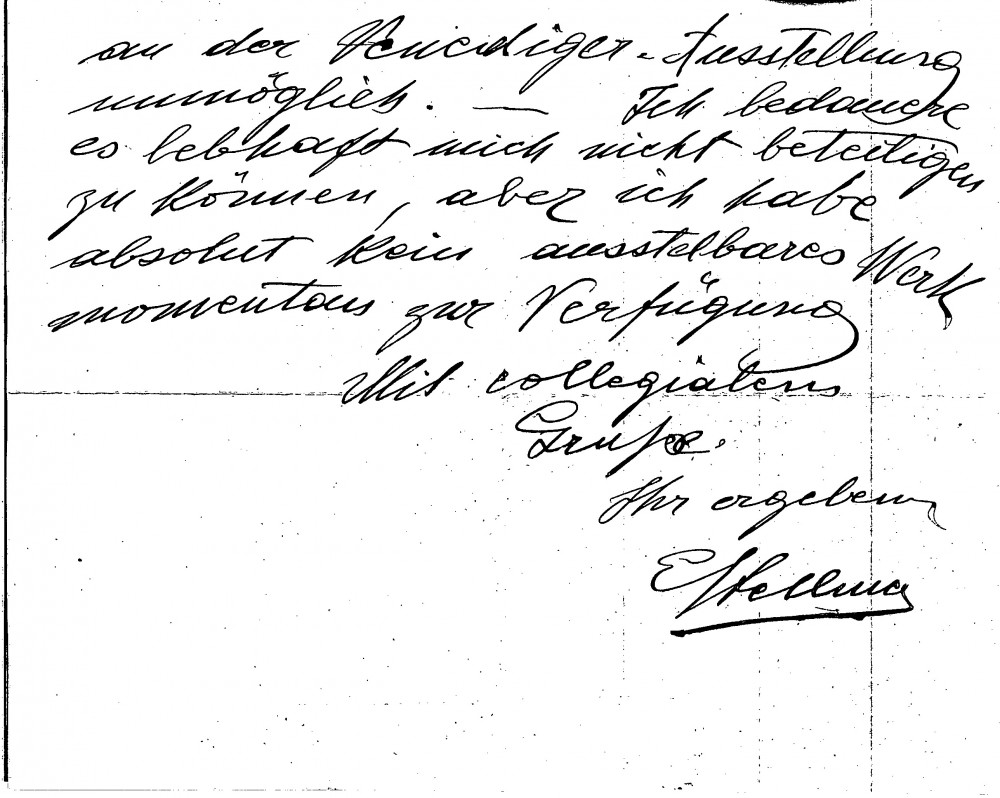 an der Venediger-Ausstellung
unmöglich. — Ich bedauere
es lebhaft mich nicht beteiligen
zu können, aber ich habe
absolut kein ausstelbares Werk
momentan zur Verfügung
Mit collegialem
Gruße.
Ihr ergeben